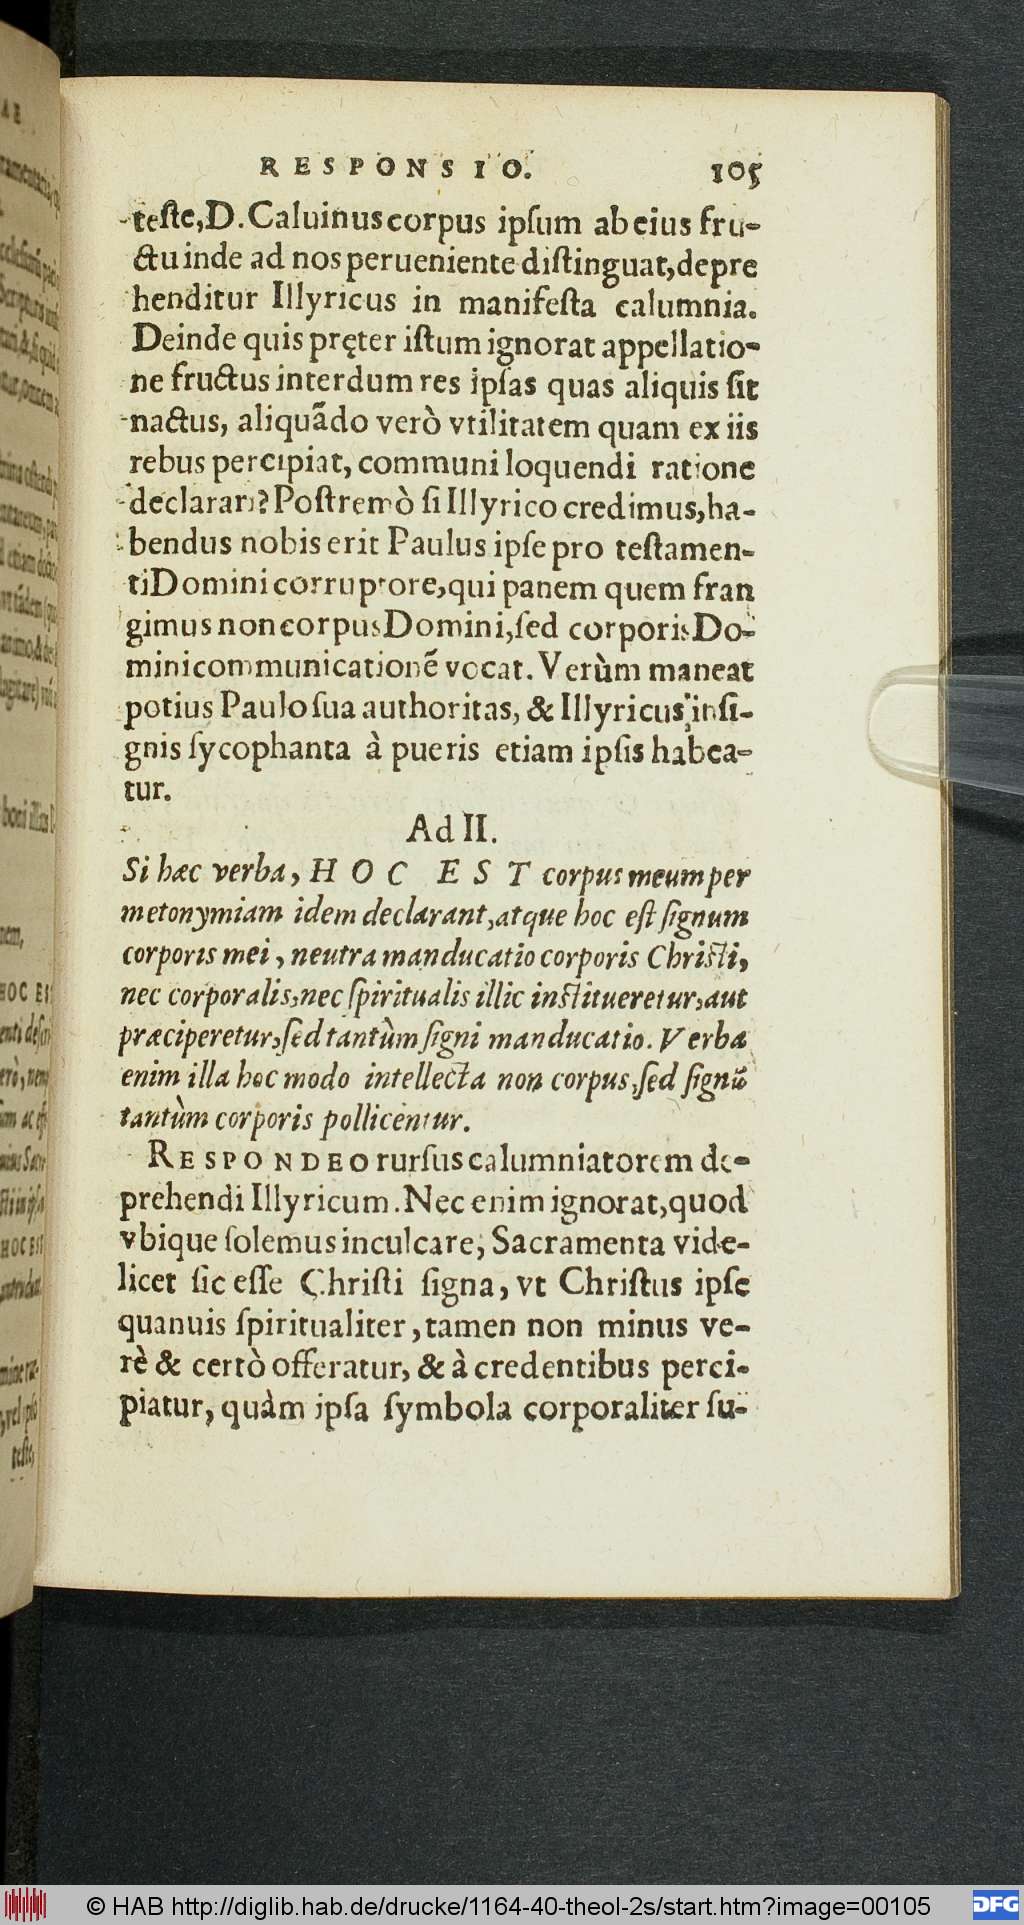 RESPONSIO. 105
teſte, D. Caluinus corpus ipſum ab eius fru-
ctu inde ad nos perueniente diſtinguat, depre
henditur Illyricus in manifeſta calumnia.
Deinde quis pręter iſtum ignorat appellatio-
ne fructus interdum res ipſas quas aliquis ſit
nactus, aliquãdo verò vtilitatem quam ex iis
rebus percipiat, communi loquendi ratione
declarari? Poſtremò ſi Illyrico credimus, ha-
bendus nobis erit Paulus ipſe pro teſtamen-
ti Domini corruptore, qui panem quem fran
gimus non corpus Domini, ſed corporis Do-
mini communicationẽ vocat. Verùm maneat
potius Paulo ſua authoritas, & Illyricus inſi-
gnis ſycophanta à pueris etiam ipſis habea-
tur.
Ad II.
Si hæc verba, HOC EST corpus meum per
metonymiam idem declarant, atque hoc eſt ſignum
corporis mei, neutra manducatio corporis Chriſti,
nec corporalis, nec ſpiritualis illic inſtitueretur, aut
præciperetur, ſed tantùm ſigni manducatio. Verba
enim illa hoc modo intellecta non corpus, ſed ſignũ
tantùm corporis pollicentur.
RESPONDEO rurſus calumniatorem de-
prehendi Illyricum. Nec enim ignorat, quod
vbique ſolemus inculcare, Sacramenta vide-
licet ſic eſſe Chriſti ſigna, vt Chriſtus ipſe
quanuis ſpiritualiter, tamen non minus ve-
rè & certò offeratur, & à credentibus perci-
piatur, quàm ipſa ſymbola corporaliter ſu-
© HAB http://diglib.hab.de/drucke/1164-40-theol-2s/start.htm?image=00105
DFG